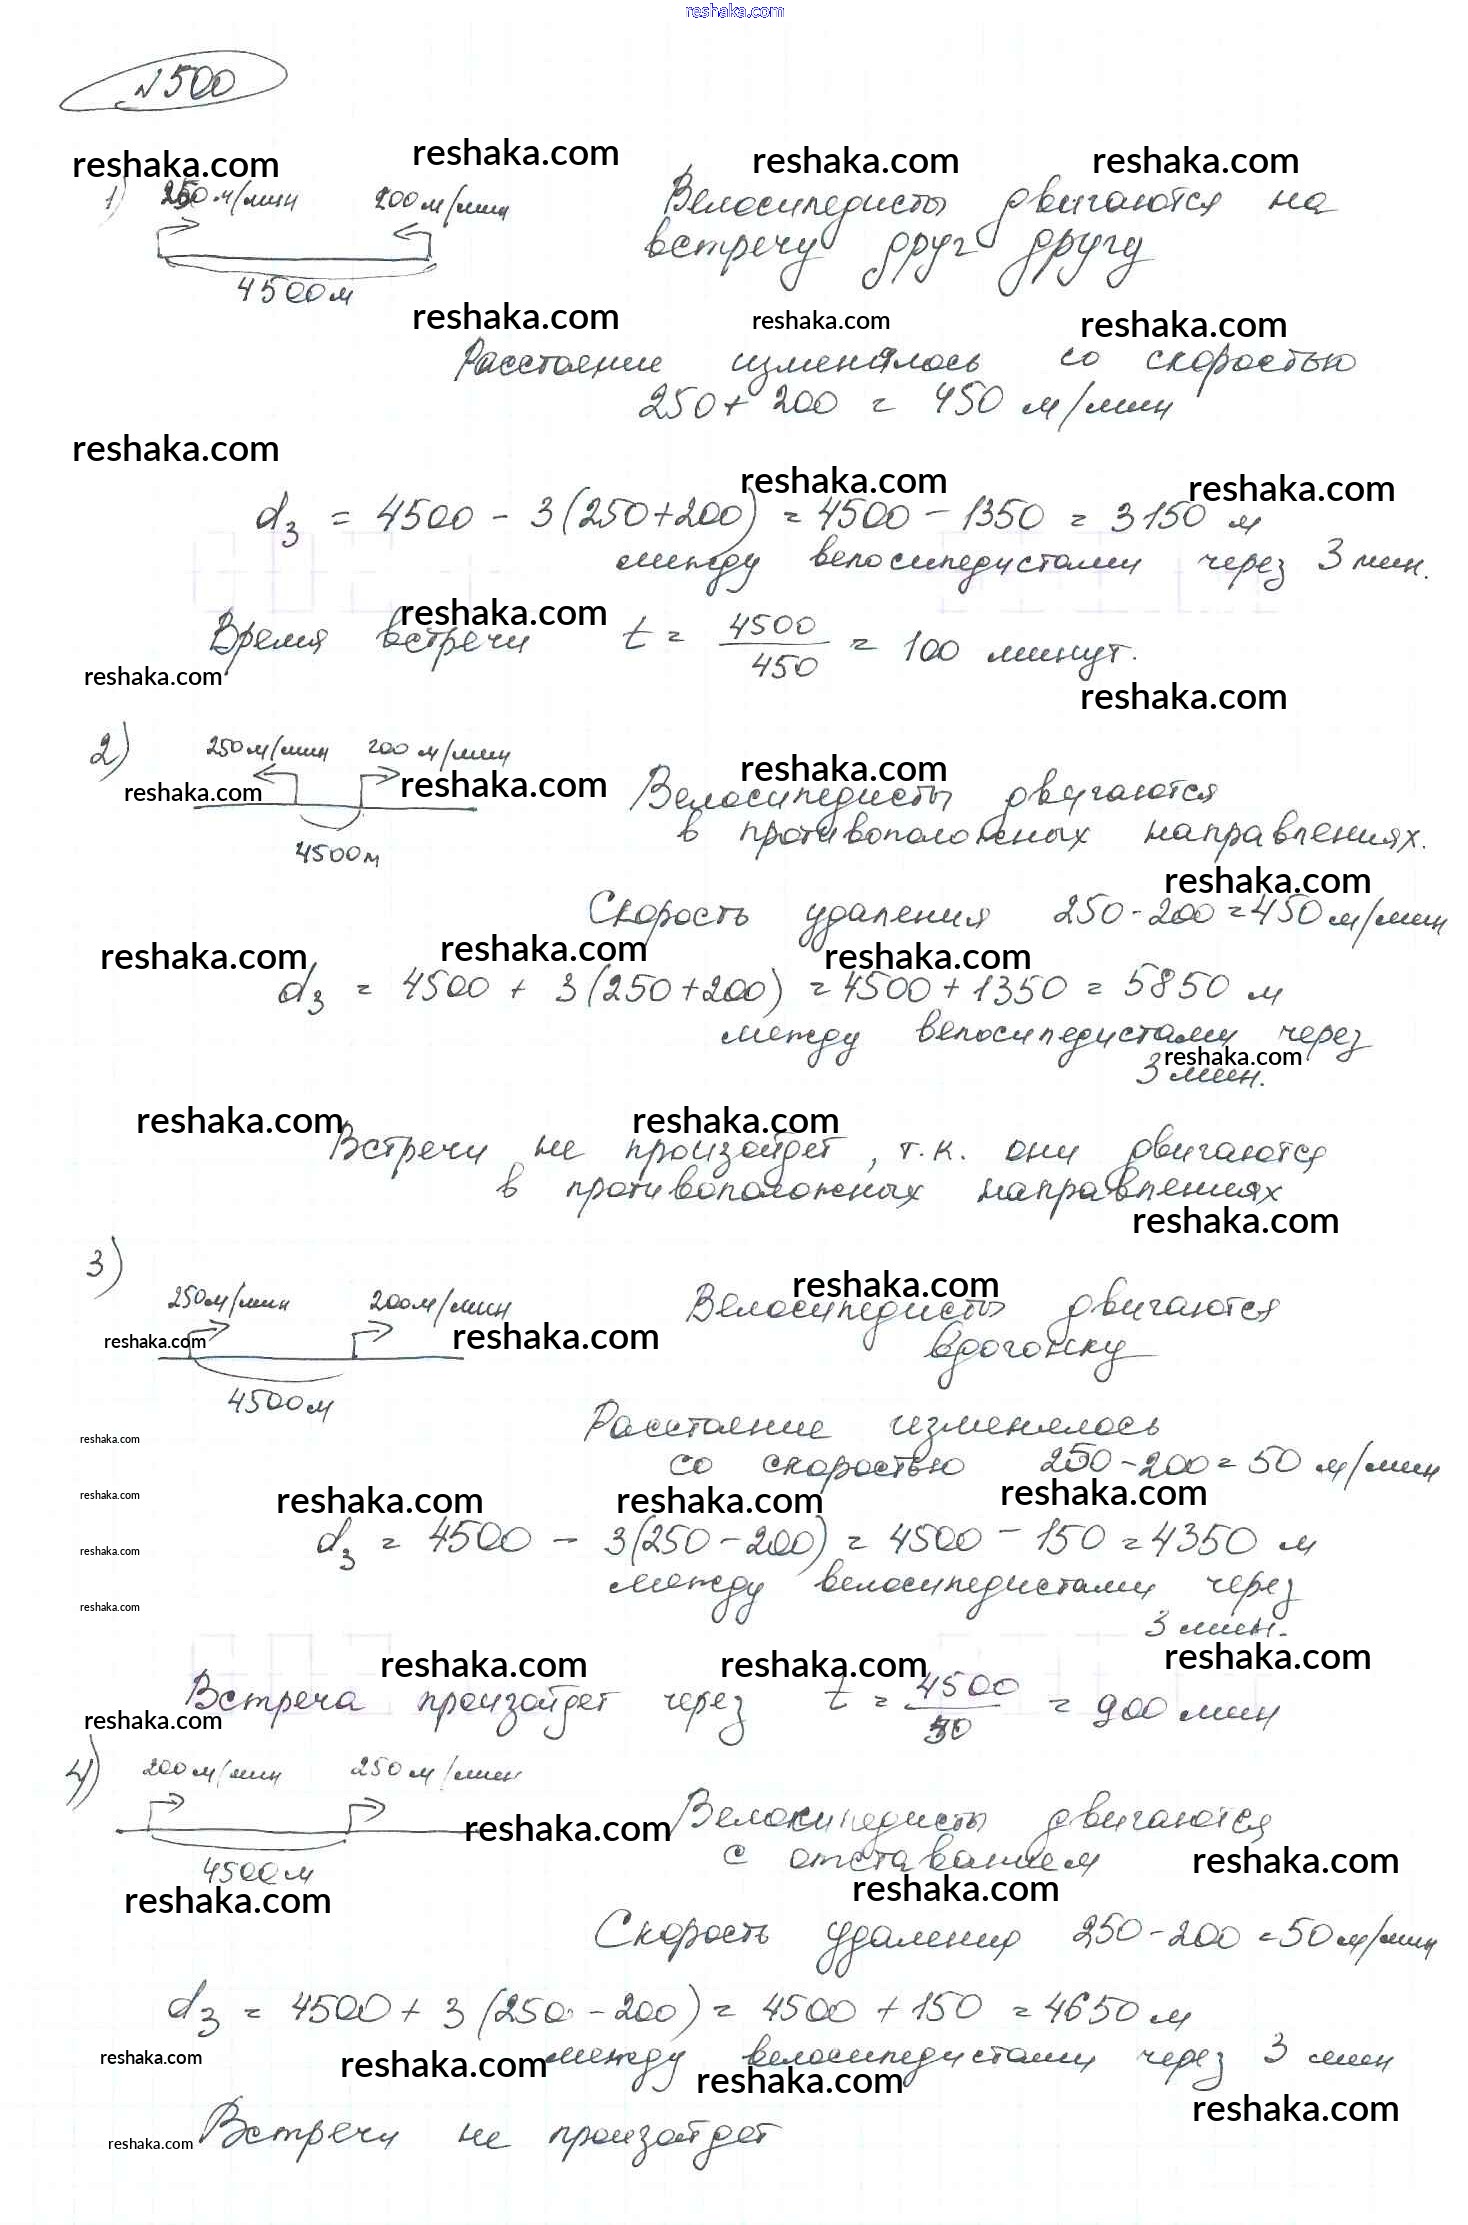 reshaka.com
№500
reshaka.com reshaka.com reshaka.com reshaka.com
1) 250 м/мин 200 м/мин
4500 м
Велосипедисты двигаются на
встречу друг другу
reshaka.com reshaka.com reshaka.com
Расстояние изменялось со скоростью
250 + 200 = 450 м/мин
reshaka.com reshaka.com reshaka.com
d3 = 4500 - 3(250+200) = 4500 - 1350 = 3150 м
между велосипедистами через 3 мин.
reshaka.com
Время встречи t = 4500/450 = 100 минут.
reshaka.com reshaka.com
2) 250 м/мин 200 м/мин
reshaka.com reshaka.com reshaka.com
4500 м
Велосипедисты двигаются
в противоположных направлениях.
reshaka.com
Скорость удаления 250 - 200 = 450 м/мин
reshaka.com reshaka.com reshaka.com
d3 = 4500 + 3(250+200) = 4500 + 1350 = 5850 м
между велосипедистами через
3 мин.
reshaka.com
reshaka.com reshaka.com
Встречи не произойдет, т.к. они двигаются
в противоположных направлениях
reshaka.com
3) 250 м/мин 200 м/мин
reshaka.com reshaka.com reshaka.com
4500 м
Велосипедисты двигаются
вдогонку
Расстояние изменялось
со скоростью 250 - 200 = 50 м/мин
reshaka.com
reshaka.com
reshaka.com reshaka.com reshaka.com
d3 = 4500 - 3(250 - 200) = 4500 - 150 = 4350 м
reshaka.com
между велосипедистами через
3 мин.
reshaka.com
reshaka.com reshaka.com reshaka.com
Встреча произойдет через t = 4500/50 = 900 мин
reshaka.com
4) 200 м/мин 250 м/мин
4500 м
reshaka.com
Велосипедисты двигаются
с отставанием
reshaka.com reshaka.com reshaka.com
Скорость удаления 250 - 200 = 50 м/мин
d3 = 4500 + 3(250 - 200) = 4500 + 150 = 4650 м
между велосипедистами через 3 мин
reshaka.com reshaka.com reshaka.com reshaka.com
Встречи не произойдет
reshaka.com